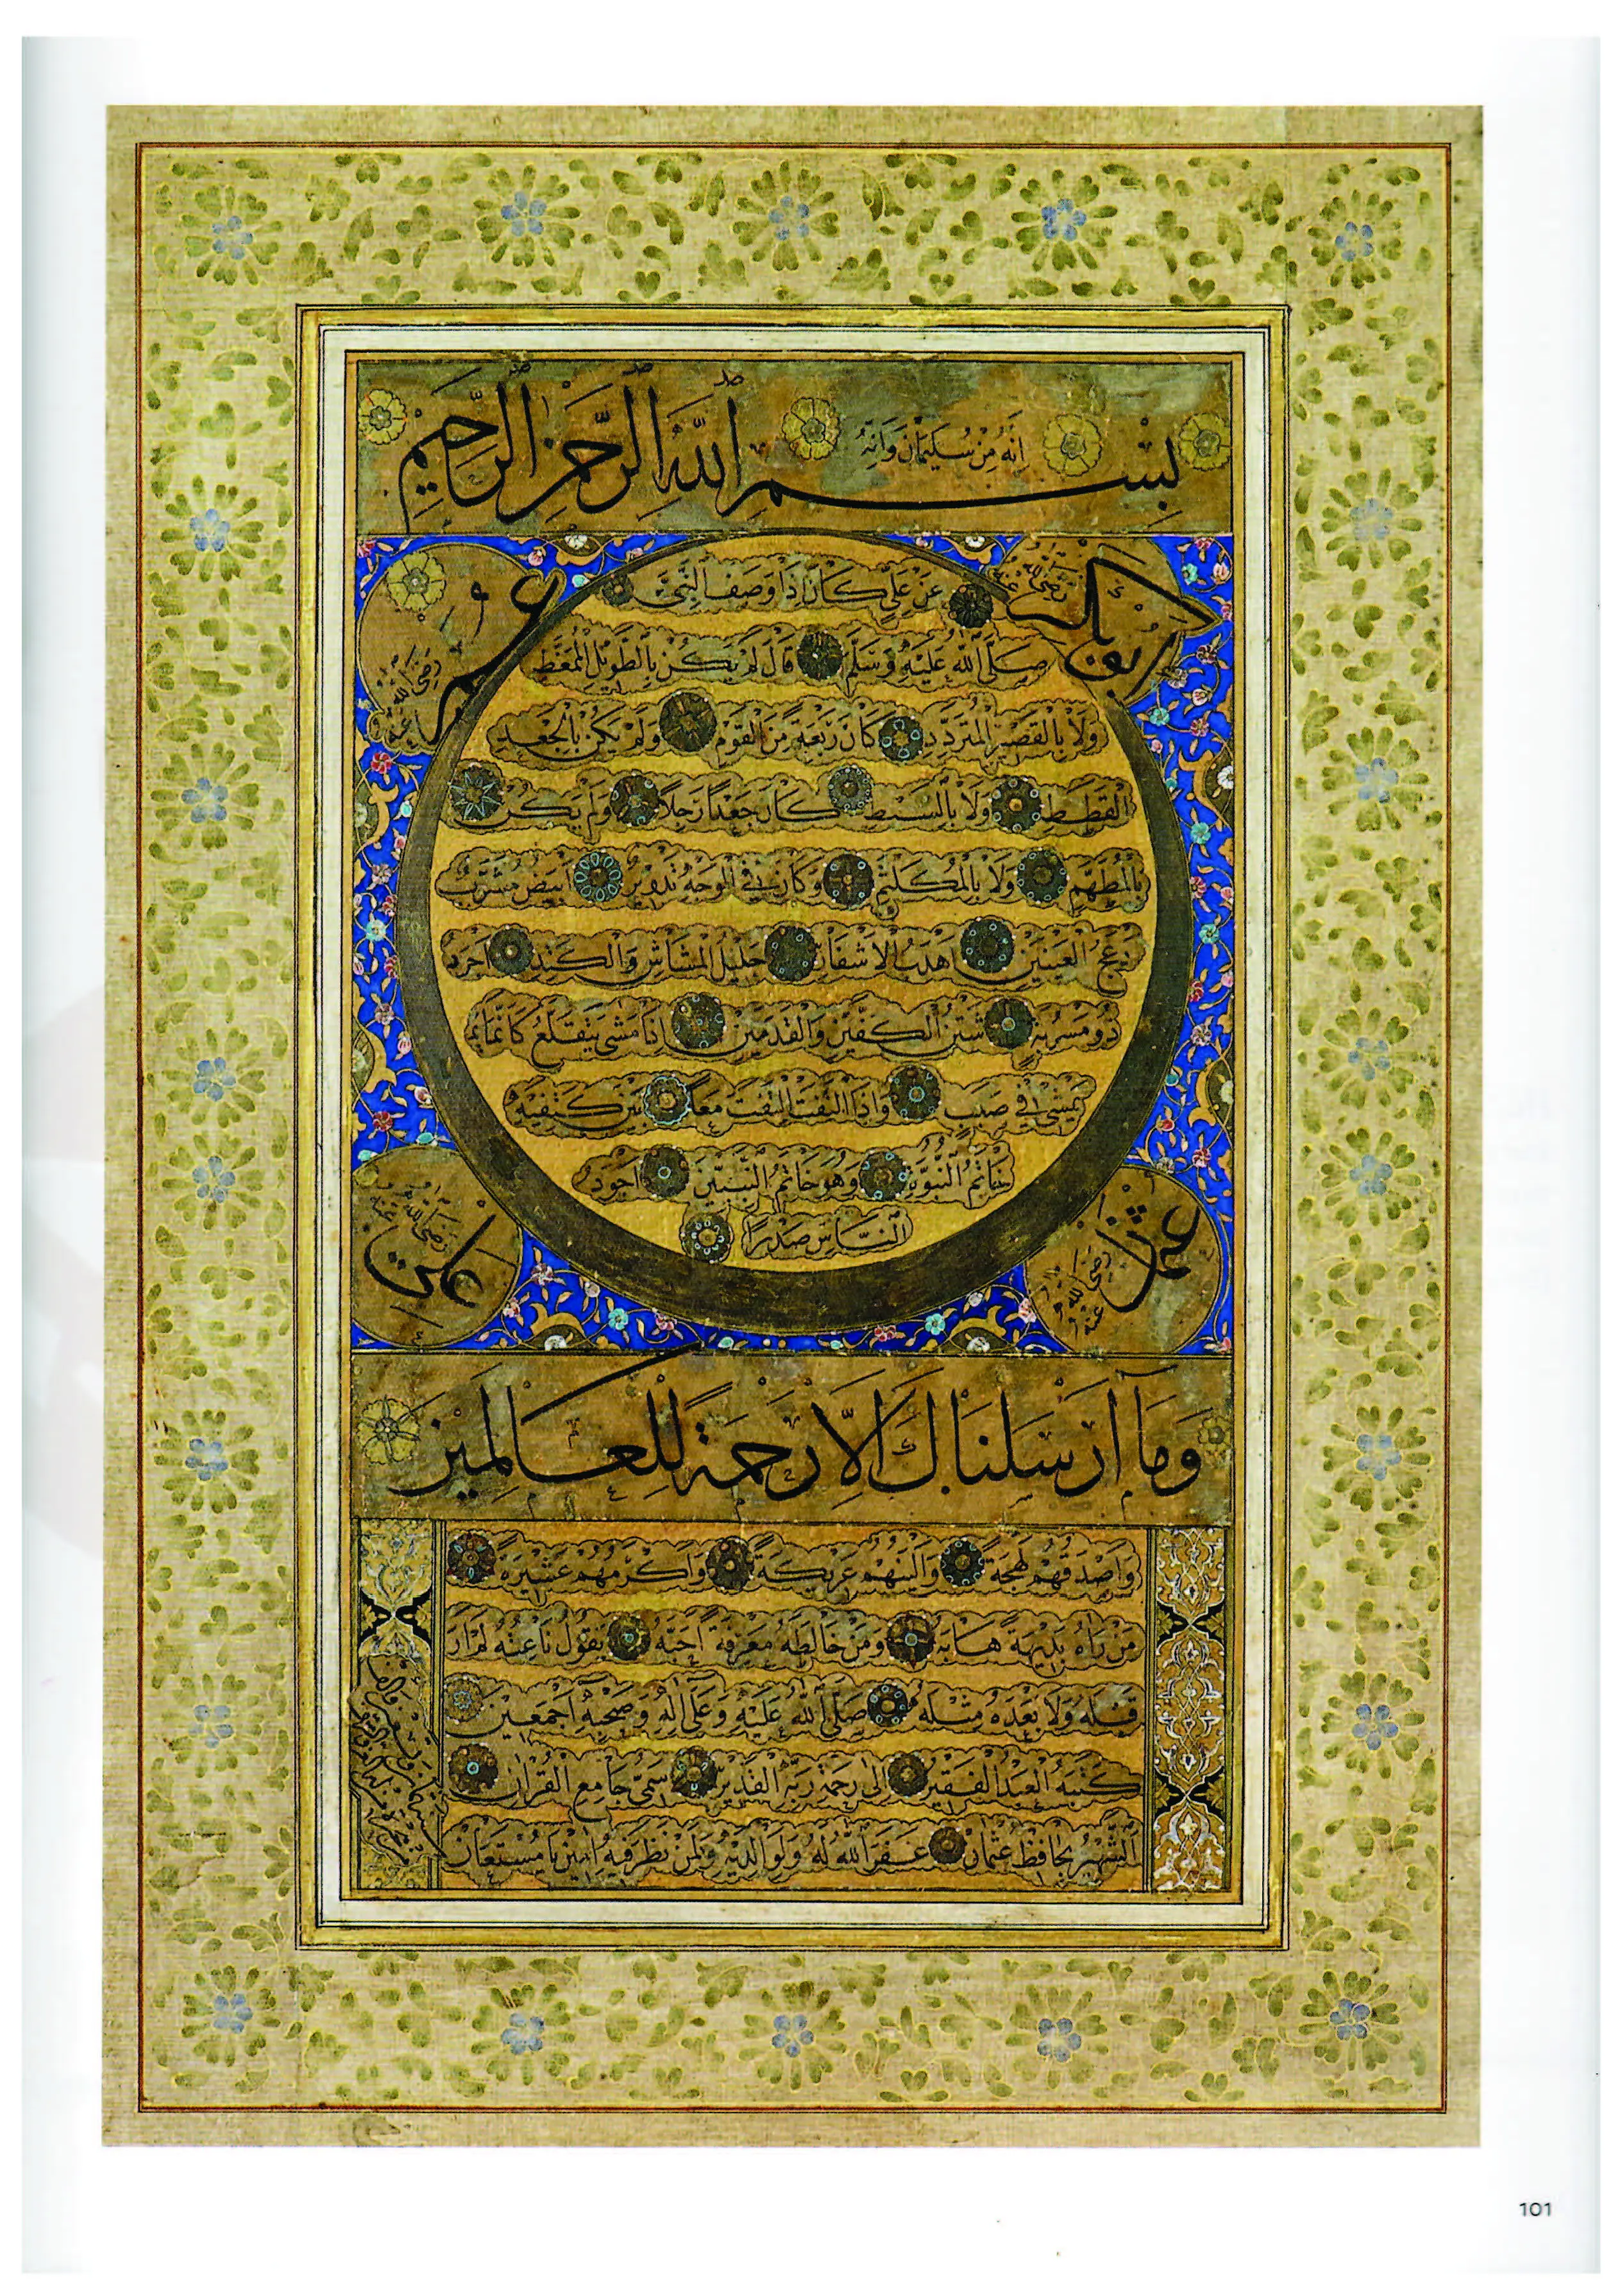 بِسْمِ اللّٰهِ الرَّحْمٰنِ الرَّحِيمِ
اِنَّهُ مِنْ سُلَيْمَانَ وَاِنَّهُ
ابوبكر رضى الله عنه
عمر رضى الله عنه
عَنْ عَلِيٍّ كَانَ اِذَا وَصَفَ النَّبِيَّ
صَلَّى اللّٰهُ عَلَيْهِ وَسَلَّمَ قَالَ لَمْ يَكُنْ بِالطَّوِيلِ الْمُمَّغِطِ
وَلَا بِالْقَصِيرِ الْمُتَرَدِّدِ كَانَ رَبْعَةً مِنَ الْقَوْمِ وَلَمْ يَكُنْ بِالْجَعْدِ
الْقَطَطِ وَلَا بِالسَّبْطِ كَانَ جَعْدًا رَجِلًا وَلَمْ يَكُنْ
بِالْمُطَهَّمِ وَلَا بِالْمُكَلْثَمِ وَكَانَ فِي الْوَجْهِ تَدْوِيرٌ اَبْيَضُ مُشْرَبٌ
اَدْعَجُ الْعَيْنَيْنِ اَهْدَبُ الْاَشْفَارِ جَلِيلُ الْمُشَاشِ وَالْكَتَدِ اَجْرَدُ
ذُو مَسْرُبَةٍ شَثْنُ الْكَفَّيْنِ وَالْقَدَمَيْنِ اِذَا مَشَى يَتَقَلَّعُ كَاَنَّمَا
يَمْشِي فِي صَبَبٍ وَاِذَا الْتَفَتَ الْتَفَتَ مَعًا بَيْنَ كَتِفَيْهِ
خَاتَمُ النُّبُوَّةِ وَهُوَ خَاتَمُ النَّبِيِّينَ اَجْوَدُ
النَّاسِ صَدْرًا
عثمان رضى الله عنه
على رضى الله عنه
وَمَا اَرْسَلْنَاكَ اِلَّا رَحْمَةً لِلْعَالَمِينَ
وَاَصْدَقُهُمْ لَهْجَةً وَاَلْيَنُهُمْ عَرِيكَةً وَاَكْرَمُهُمْ عَشِيرَةً
مَنْ رَاٰهُ بَدِيهَةً هَابَهُ وَمَنْ خَالَطَهُ مَعْرِفَةً اَحَبَّهُ يَقُولُ نَاعِتُهُ لَمْ اَرَ
قَبْلَهُ وَلَا بَعْدَهُ مِثْلَهُ صَلَّى اللّٰهُ عَلَيْهِ وَعَلَى اٰلِهِ وَصَحْبِهِ اَجْمَعِينَ
كَتَبَهُ الْعَبْدُ الْفَقِيرُ اِلَى رَحْمَةِ رَبِّهِ الْقَدِيرِ سَمِيُّ جَامِعِ الْقُرْاٰنِ
الشَّهِيرُ بِحَافِظْ عُثْمَانْ غَفَرَ اللّٰهُ لَهُ وَلِوَالِدَيْهِ وَلِمَنْ نَظَرَ فِيهِ اٰمِينَ يَا مُسْتَعَانُ
101